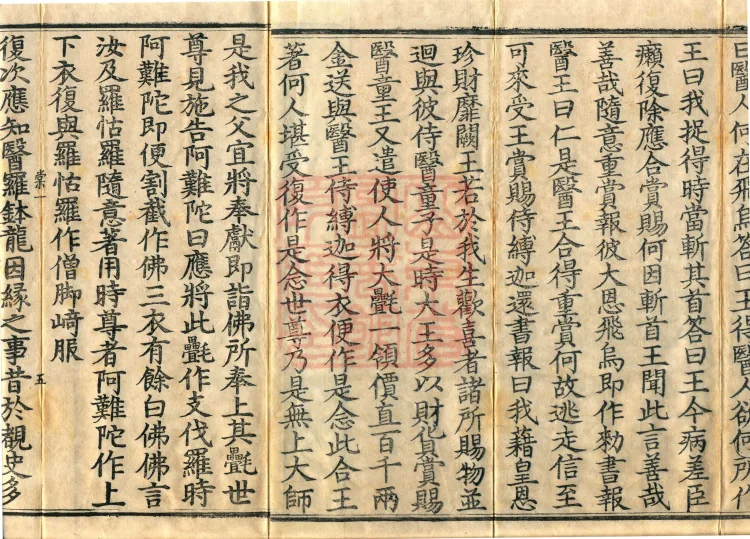 曰醫人何在飛烏答曰王得醫人欲何所作
王曰我捉得時當斬其首答曰王今病差臣
癩復除應合賞賜何因斬首王聞此言善哉
善哉隨意重賞報彼大恩飛烏即作勑書報
醫王曰仁是醫王合得重賞何故逃走信至
可來受王賞賜侍縛迦還書報曰我藉皇恩
珍財靡闕王若於我生歡喜者諸所賜物並
迴與彼侍醫童子是時大王多以財貨賞賜
醫童王又遣使人將大氎一領價直百千兩
金送與醫王侍縛迦得衣便作是念此合王
著何人堪受復作是念世尊乃是無上大師
是我之父宜將奉獻即詣佛所奉上其氎世
尊見施告阿難陀曰應將此氎作支伐羅時
阿難陀即便割截作佛三衣有餘白佛佛言
汝及羅怙羅隨意著用時尊者阿難陀作上
下衣復與羅怙羅作僧脚崎服
棠一 五
復次應知醫羅鉢龍因緣之事昔於覩史多